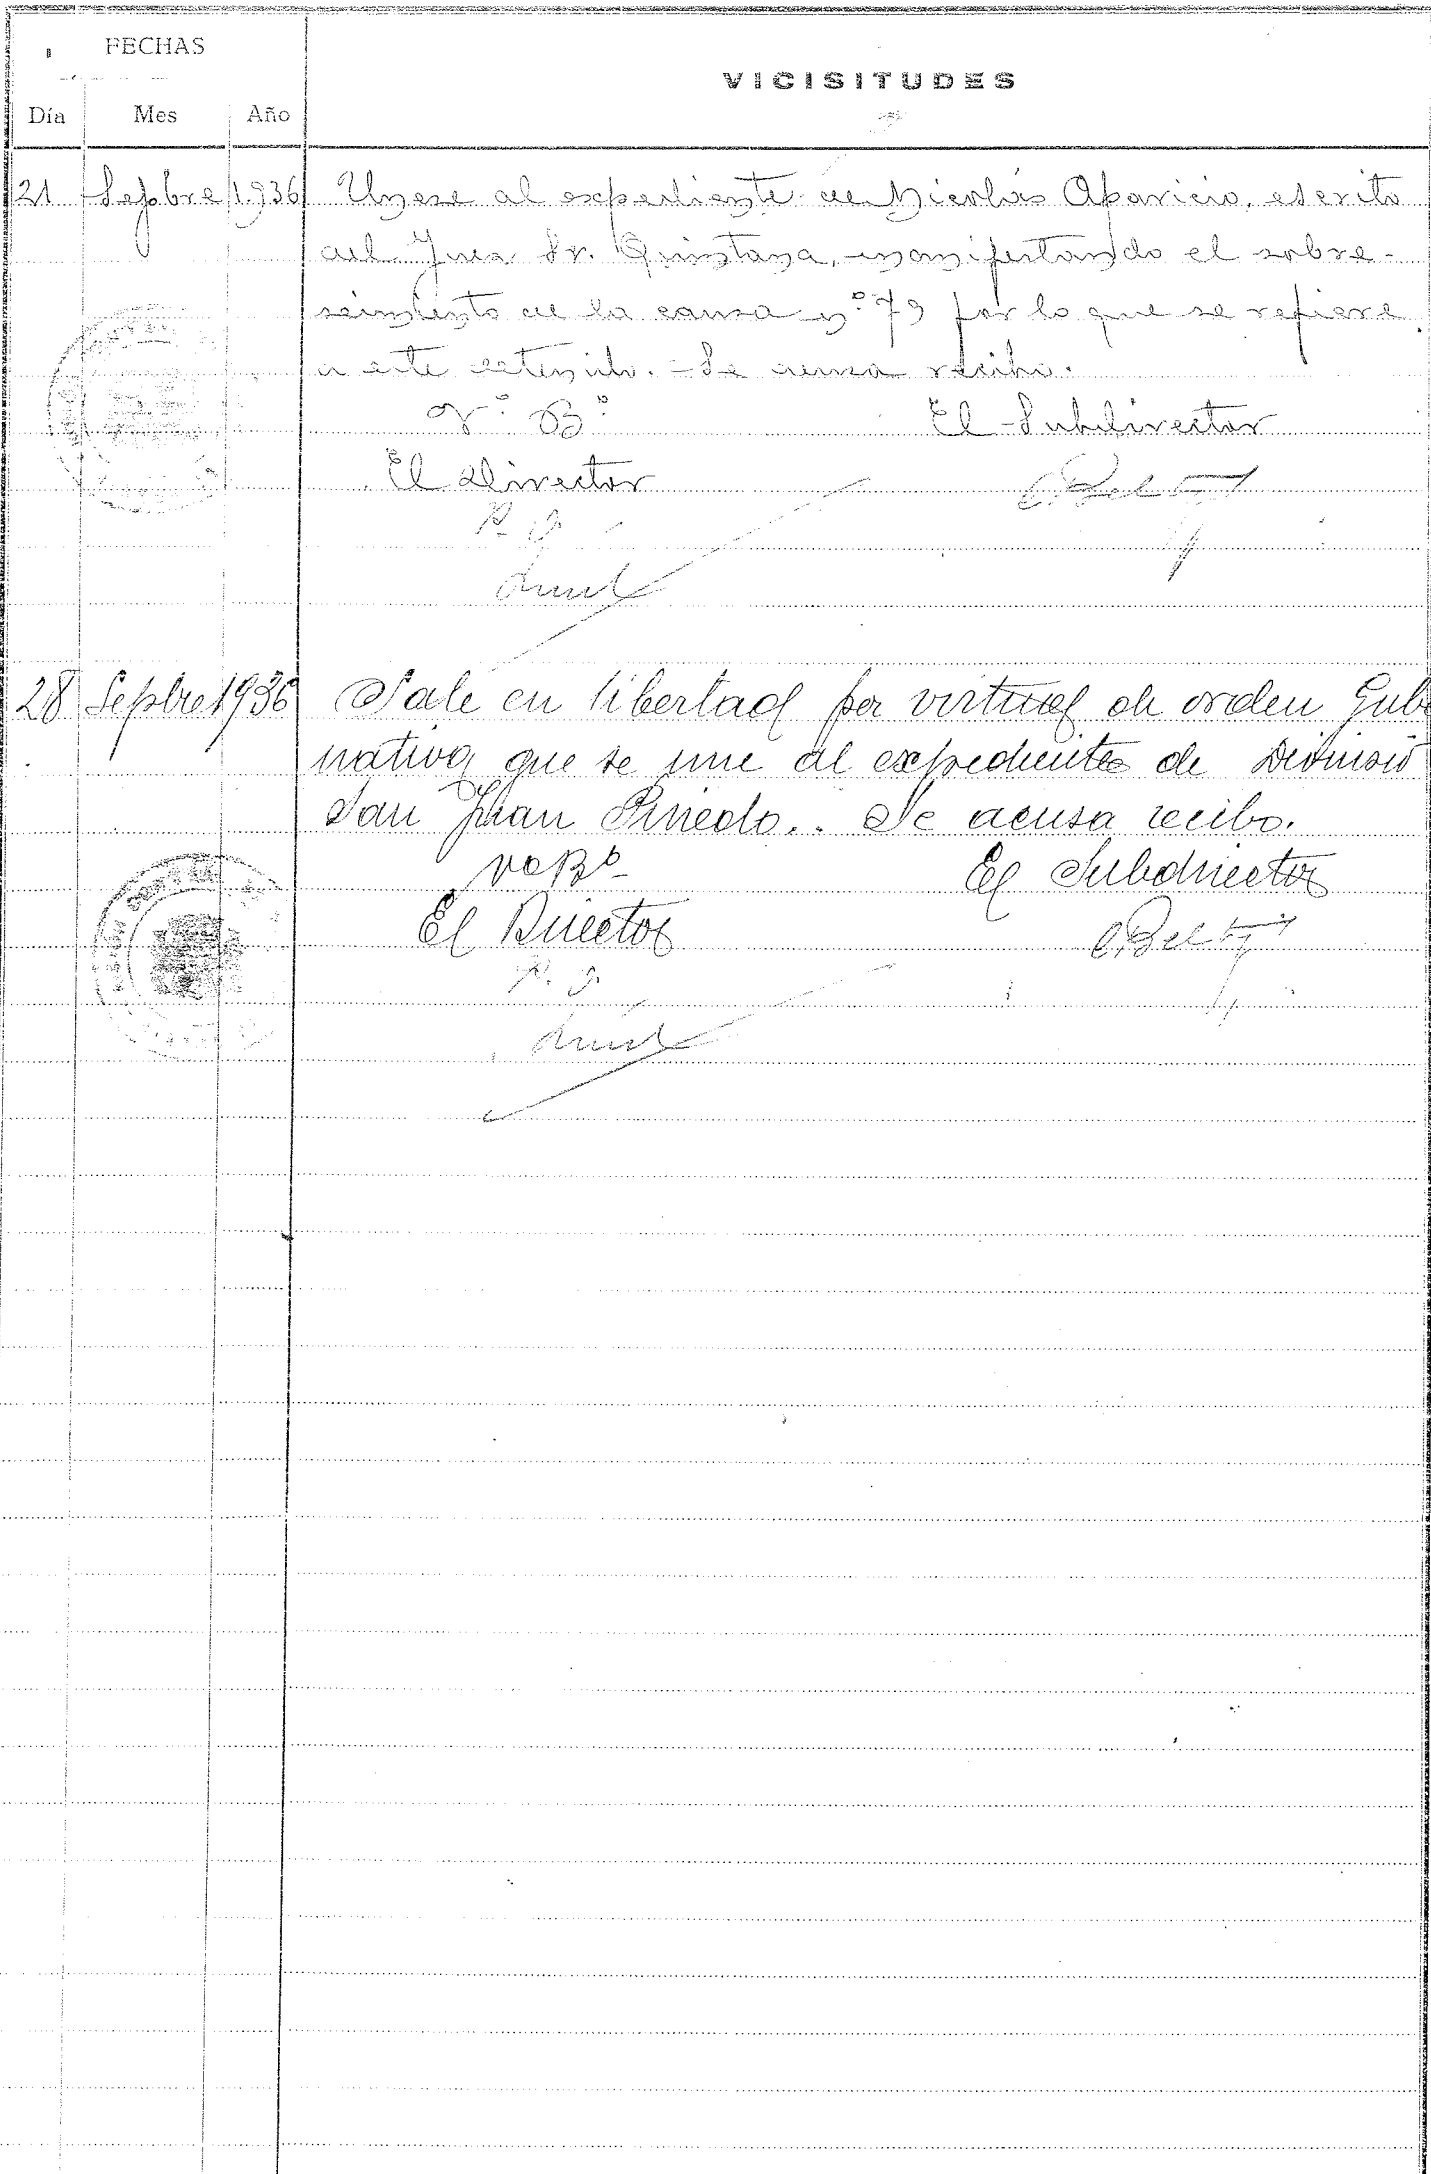 FECHAS
VICISITUDES
Día Mes Año
21 Sepbre 1.936 Unese al expediente de Nicolás Aparicio, escrito
del Juez Sr. Quintana, manifestando el sobre-
seimiento de la causa nº 79 por lo que se refiere
a este detenido. = Se acusa recibo.
Vº Bº El Subdirector
El Director
P. O.
28 Sepbre 1936 Sale en libertad por virtud de orden Guber
nativa que se une al expediente de Dionisio
San Juan Pinedo.. Se acusa recibo.
VºBº El Subdirector
El Director
P. O.